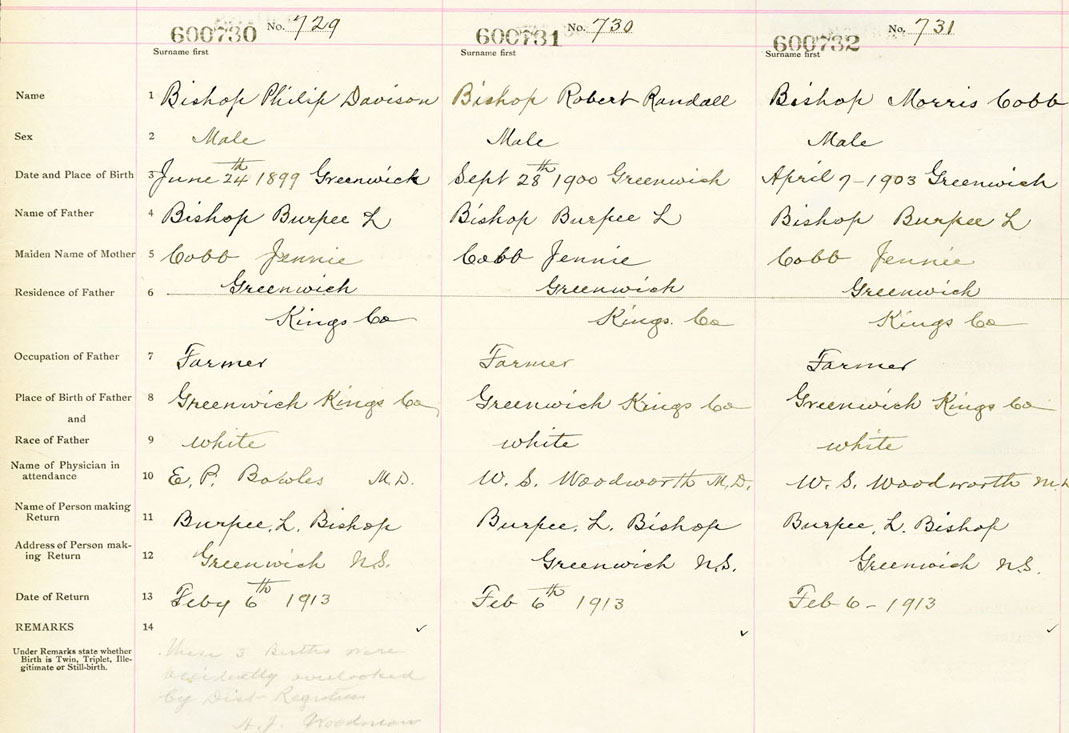 600730 No. 729 600731 No. 730 600732 No. 731
Surname first Surname first Surname first
Name 1 Bishop Philip Davison Bishop Robert Randall Bishop Morris Cobb
Sex 2 Male Male Male
Date and Place of Birth 3 June 24th 1899 Greenwick Sept 28th 1900 Greenwich April 7-1903 Greenwich
Name of Father 4 Bishop Burpee L Bishop Burpee L Bishop Burpee L
Maiden Name of Mother 5 Cobb Jennie Cobb Jennie Cobb Jennie
Residence of Father 6 Greenwich Greenwich Greenwich
Kings Co Kings. Co Kings Co
Occupation of Father 7 Farmer Farmer Farmer
Place of Birth of Father 8 Greenwich Kings Co Greenwich Kings Co Greenwich Kings Co
and
Race of Father 9 white white white
Name of Physician in
attendance 10 E. P. Bowles M.D. W. S. Woodworth M.D. W. S. Woodworth M.D
Name of Person making
Return 11 Burpee, L. Bishop Burpee, L. Bishop Burpee, L. Bishop
Address of Person mak-
ing Return 12 Greenwich N.S. Greenwich N.S. Greenwich N.S.
Date of Return 13 Feby 6th 1913 Feb 6th 1913 Feb 6-1913
REMARKS 14
Under Remarks state whether
Birth is Twin, Triplet, Ille-
gitimate or Still-birth.
These 3 Births were
overlooked
by Dist Registrar